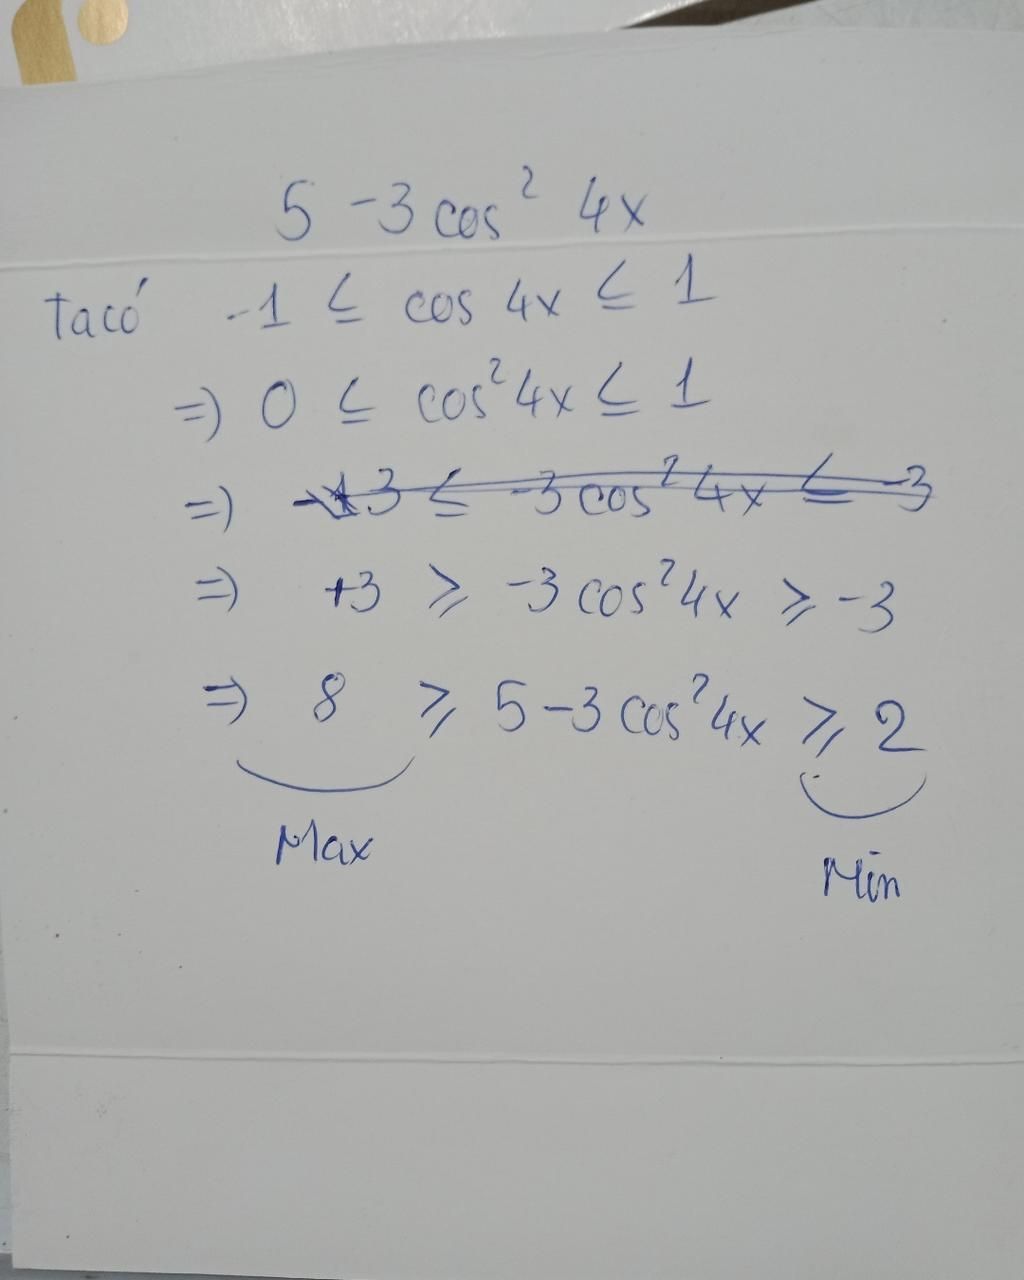 5 - 3 cos² 4x
Ta có -1 ≤ cos 4x ≤ 1
=> 0 ≤ cos² 4x ≤ 1
=> 3 ≤ -3 cos² 4x ≤ -3
=> +3 ≥ -3 cos² 4x ≥ -3
=> 8 ≥ 5 - 3 cos² 4x ≥ 2
Max Min